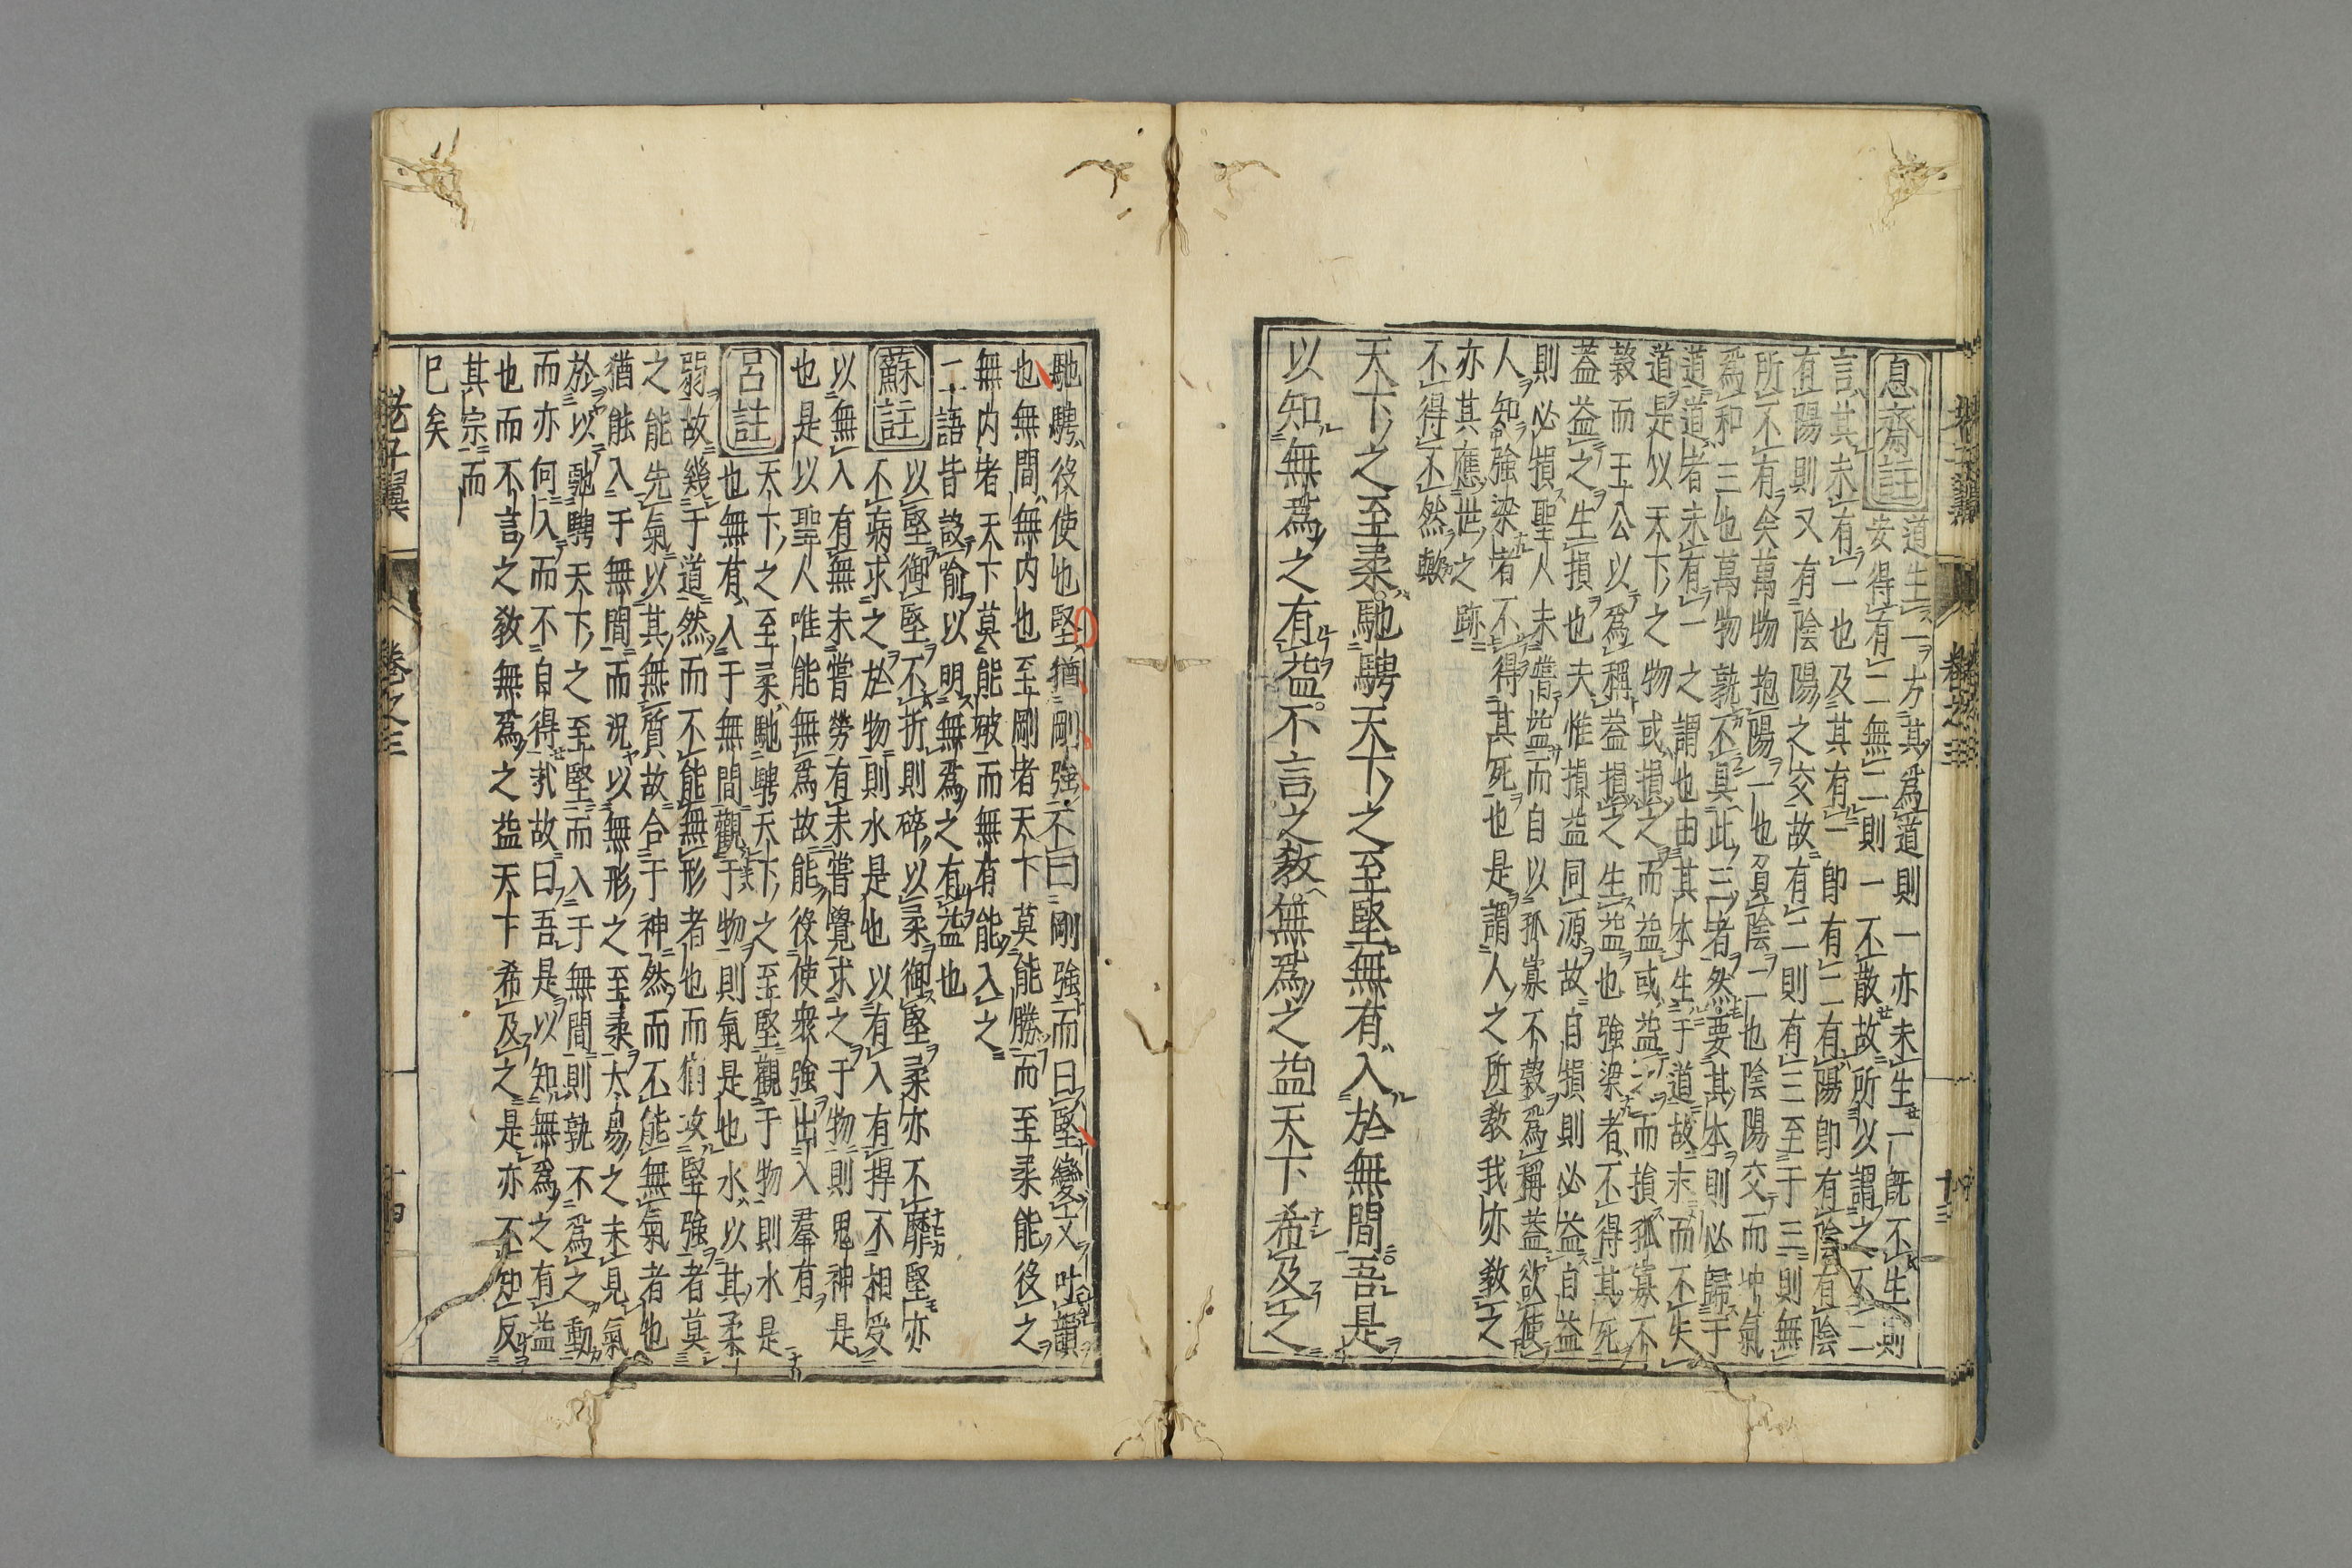 息齋註
道生一方其爲道則一亦未生一旣不生則
安得有二無二則一不散故所以謂之不二
言其未有一也及其有一卽有二有陽卽有陰有陰
有陽則又有陰陽之交故有二則有三至于三則無
所不有矣萬物抱陽一也負陰二也陰陽交而冲氣
爲和三也萬物孰不具此三者然要其本則必歸于
道道者未有一之謂也由其本生于道故末而不失
道是以天下之物或損之而益或益之而損孤寡不
穀而王公以爲稱蓋損之生益也強梁者不得其死
蓋益之生損也夫惟損益同源故自損則必益自益
則必損聖人未嘗益而自以孤寡不穀爲稱蓋欲使
人知強梁者不得其死也是謂人之所敎我亦敎之
亦其應世之跡
不得不然歟
天下之至柔馳騁天下之至堅無有入於無間吾是
以知無爲之有益不言之敎無爲之益天下希及之
老子翼 卷之三 十三
馳騁役使也堅猶剛強不曰剛強而曰堅變文叶韻
也無間無内也至剛者天下莫能勝而至柔能役之
無内者天下莫能破而無有能入之
二語皆設喻以明無爲之有益也
蘇註
以堅御堅不折則碎以柔御堅柔亦不靡堅亦
不病求之於物則水是也以有入有捍不相受
以無入有無未嘗勞有未嘗覺求之于物則鬼神是
也是以聖人唯能無爲故能役使衆強出入羣有
呂註
天下之至柔馳騁天下之至堅觀于物則水是
也無有入于無間觀于物則氣是也水以其柔
弱故幾于道然而不能無形者也而猶攻堅強者莫
之能先氣以其無質故合于神然而不能無氣者也
猶能入于無間而況以無形之至柔太易之未見氣
於以馳騁天下之至堅而入于無間則孰不爲之動
而亦何入而不自得哉故曰吾是以知無爲之有益
也而不言之敎無爲之益天下希及之是亦不知反
其宗而
已矣
老子翼 卷之三 十四